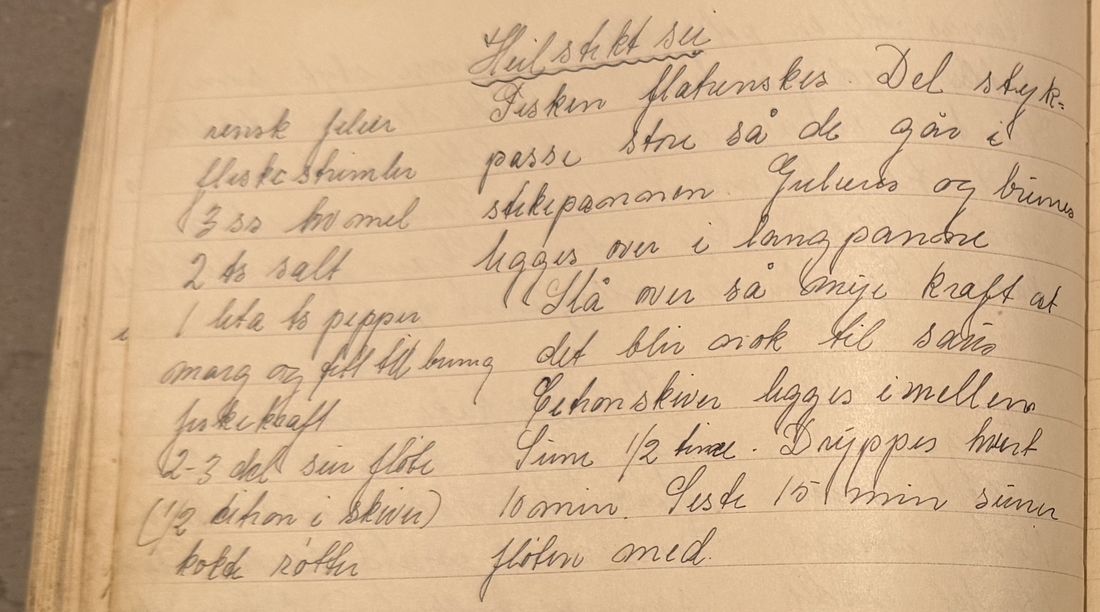 Heilstekt sei
rensk fileer
fleskestrimler
3 ss hvmel
2 ts salt
1 lita ts pepper
marg og fitt til bruning
fiskekraft
2-3 del sur fløte
(1/2 citron i skiver)
kolde røtter
Fisken flatrenskes. Del styk-
passe store så de går i
stekepannen. Gulieres og brunes
legges over i langpanne
Slå over så mye kraft at
det blir nok til saus
Citronskiver legges i mellem
Surre 1/2 time. Dryppes hvert
10 min. Siste 15 min surrer
fløten med.